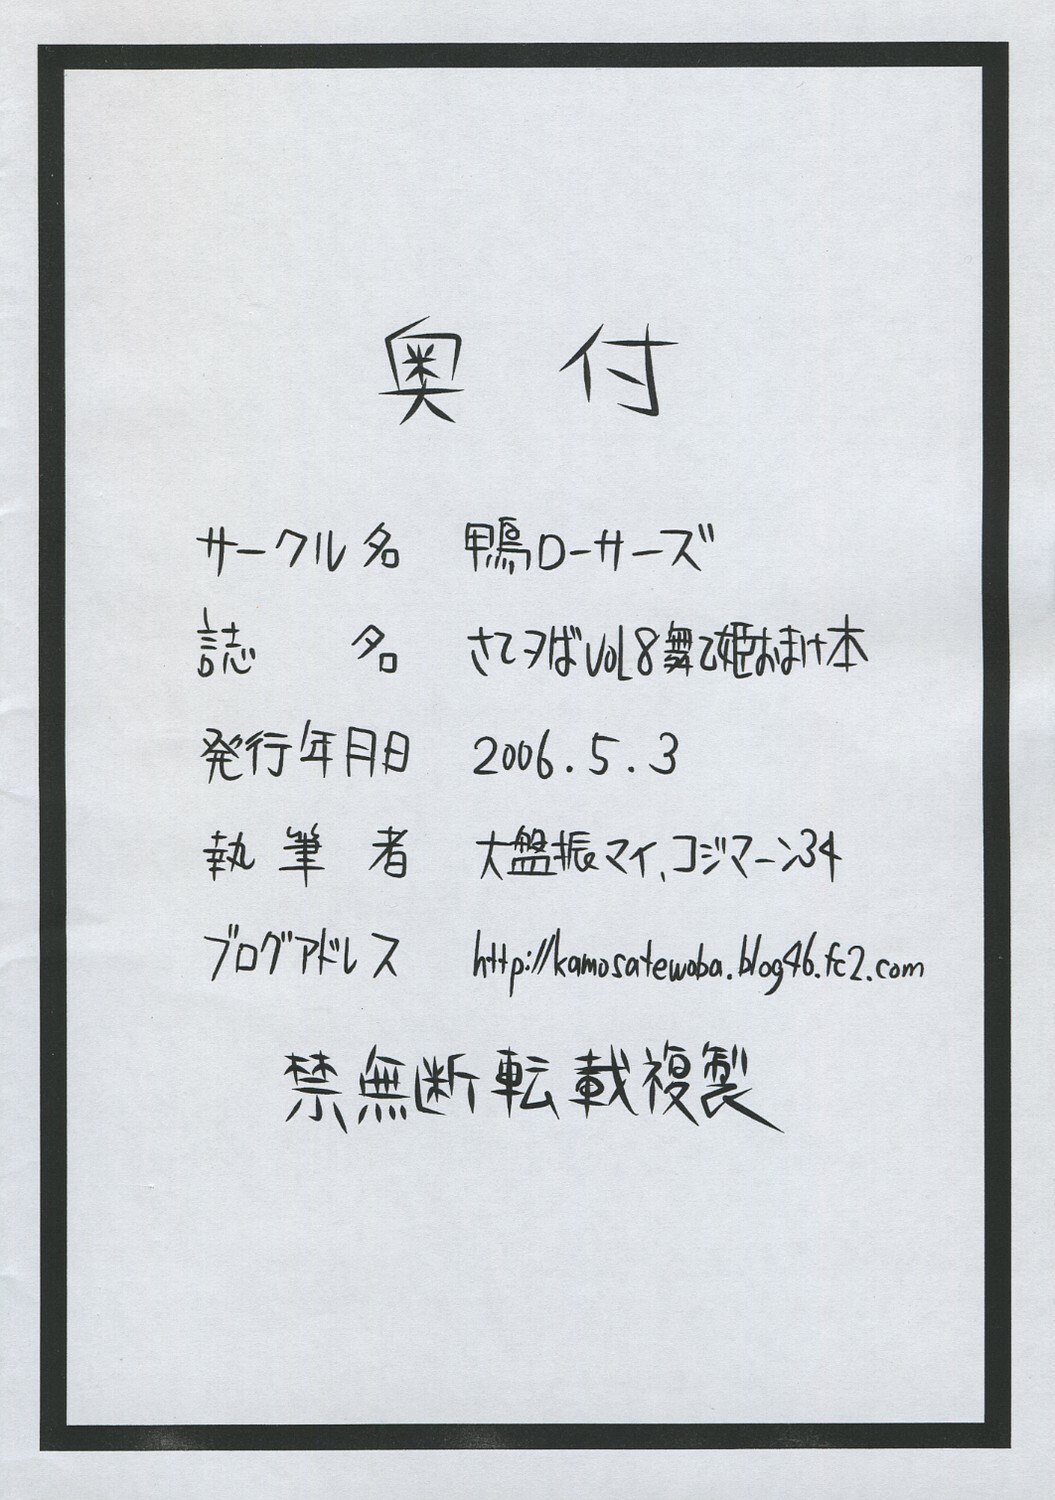 奥付
サークル名 鴨ローサーズ
誌名 さてヲばVol8舞乙姫おまけ本
発行年月日 2006.5.3
執筆者 大盤振マイ、コジマーン34
ブログアドレス http://kamosatewoba.blog46.fc2.com
禁無断転載複製